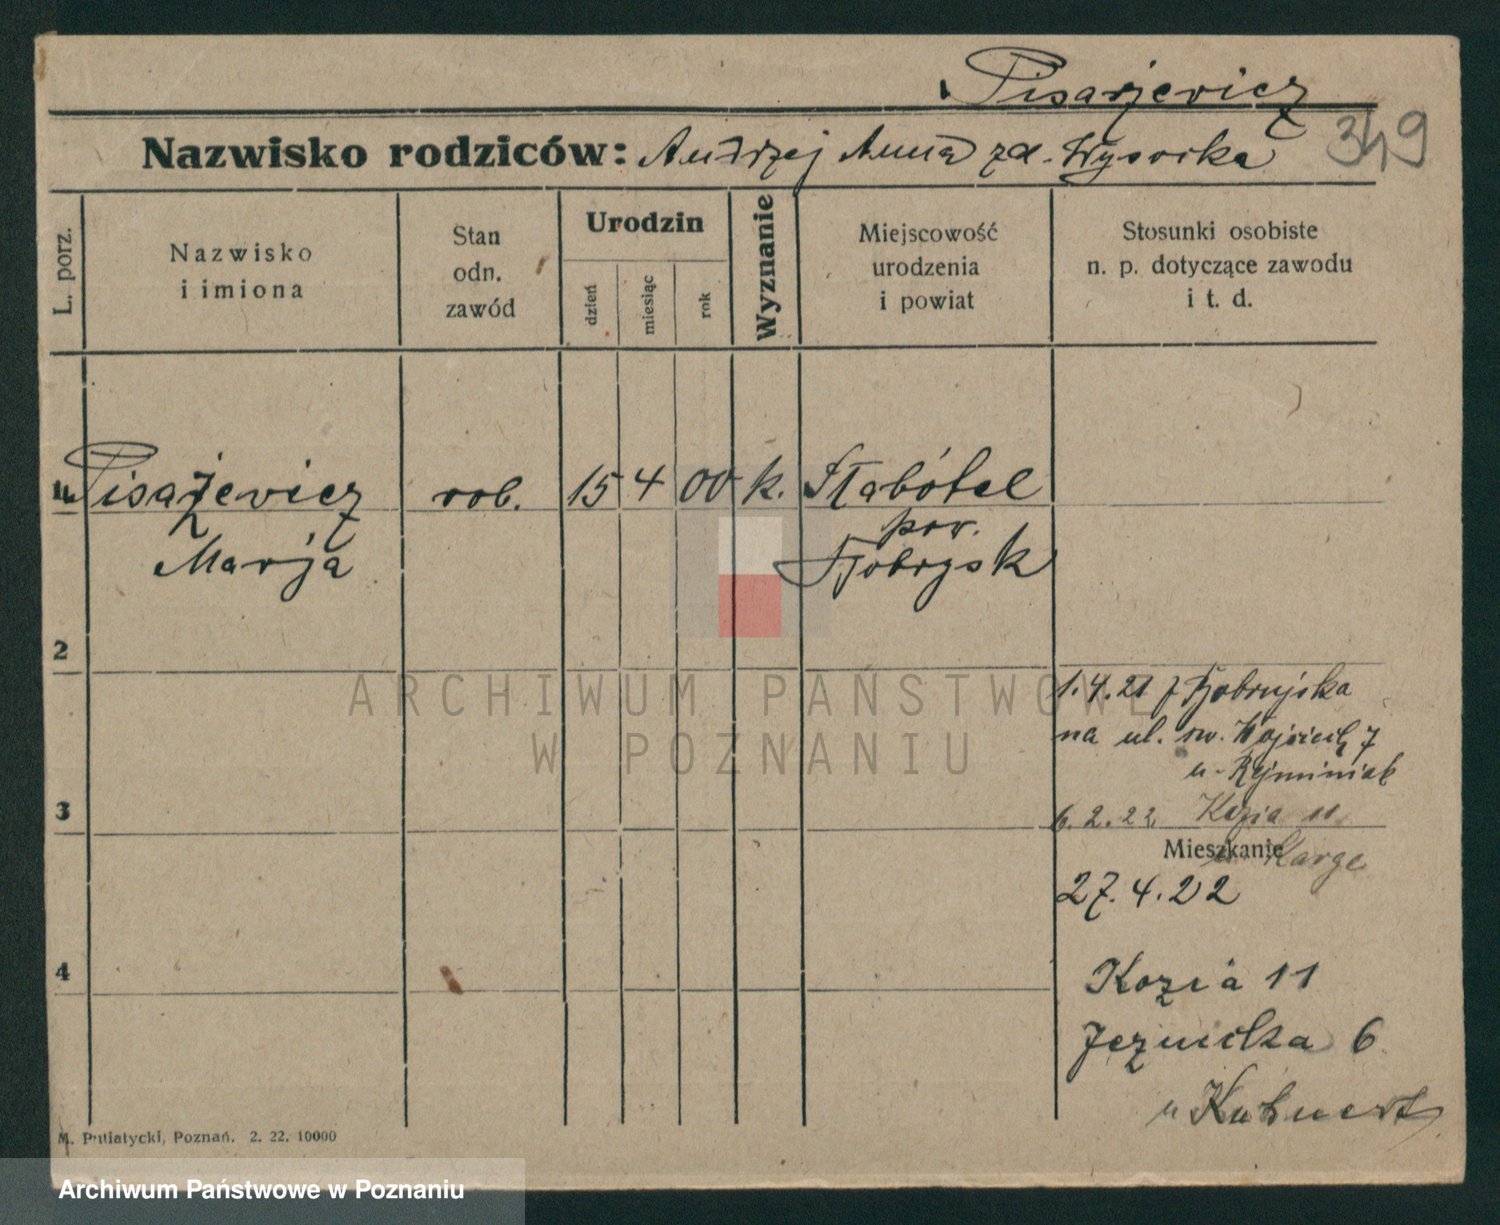 Pisarzewicz
349
Nazwisko rodziców: Andrzej Anna zd. Wysocka
L. porz.
Nazwisko
i imiona
Stan
odn.
zawód
Urodzin
dzień
miesiąc
rok
Wyznanie
Miejscowość
urodzenia
i powiat
Stosunki osobiste
n. p. dotyczące zawodu
i t. d.
1 Pisarzewicz rob. 15 4 00 k.
pow.
Marja
2
1.4.21 z
na ul. św. Wojciech 7
u
3
6.2.22 Kozia 11
Mieszkanie
u Karge
27.4.22
4
Kozia 11
Jezuicka 6
u Kuhnert
M. Putiatycki, Poznań. 2. 22. 10000
ARCHIWUM PAŃSTWOWE
W POZNANIU
Archiwum Państwowe w Poznaniu